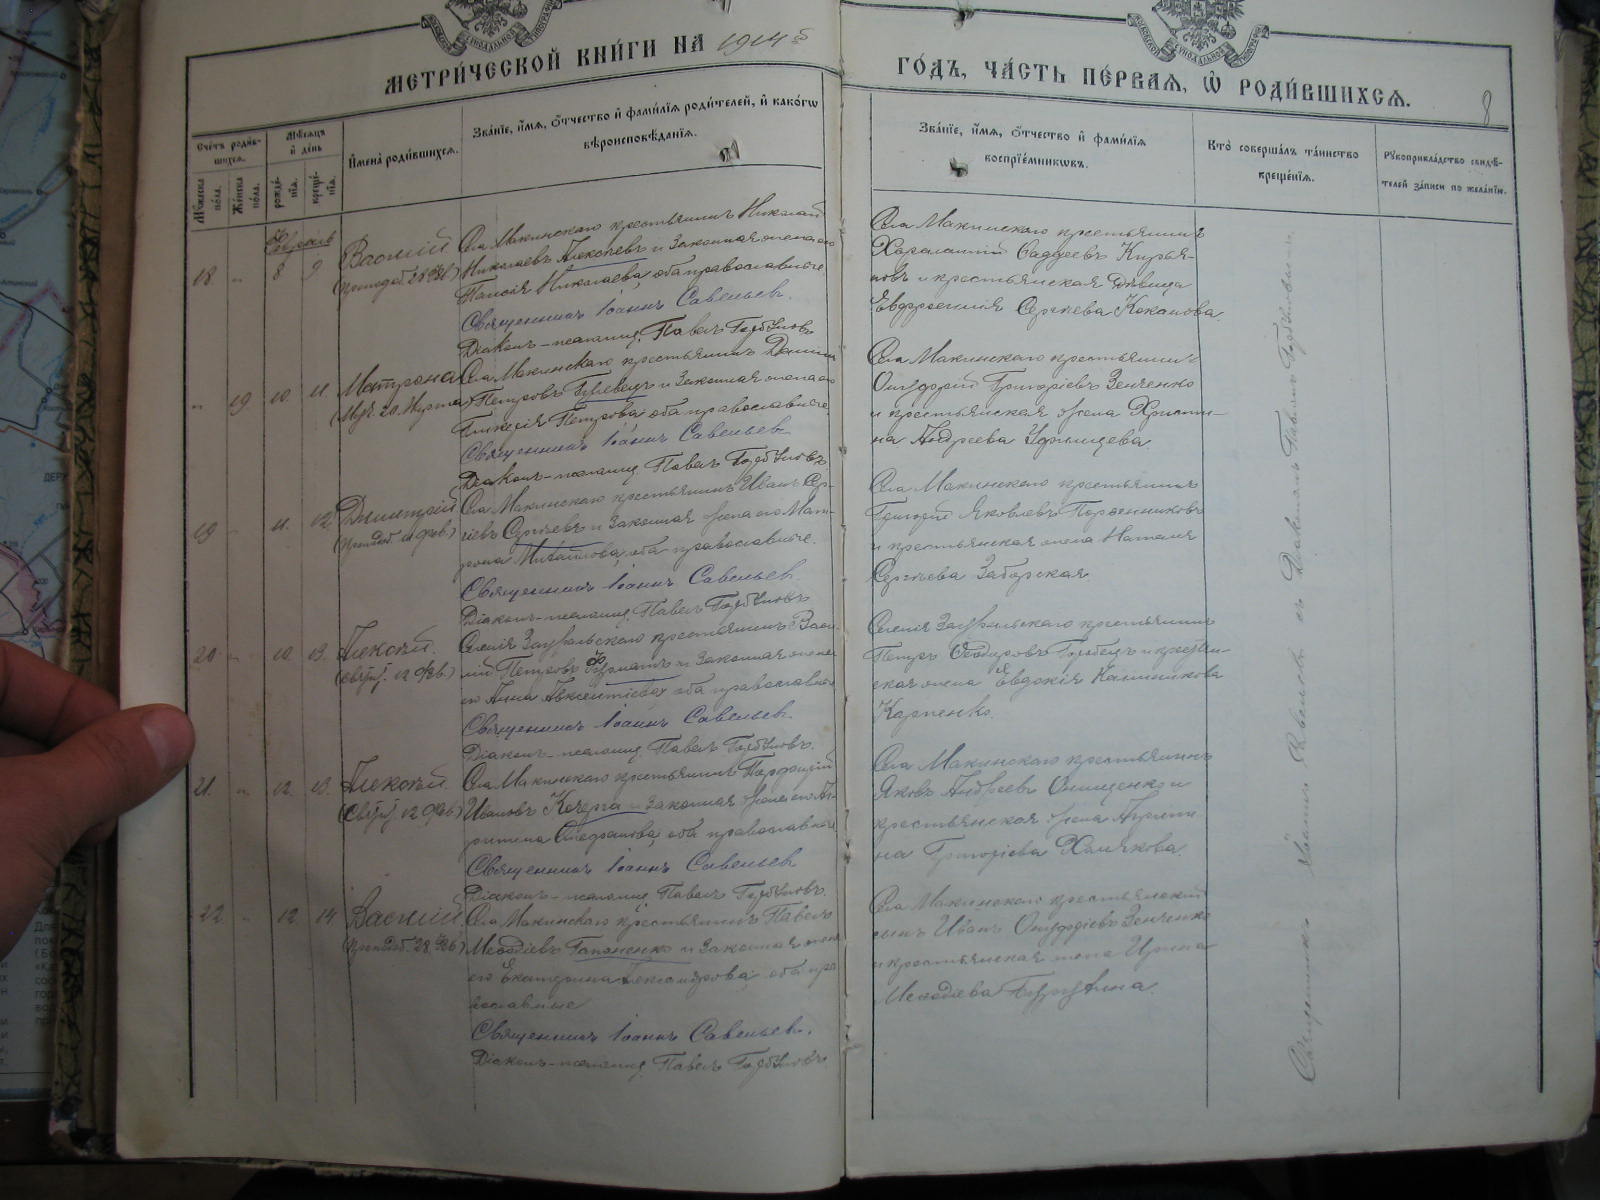 МЕТРИ́ЧЕСКОЙ КНИ́ГИ НА 1914
ГО́ДЪ, ЧА́СТЬ ПЕ́РВАЯ, Ѡ҆ РОДИ́ВШИХСЯ.
8
Сче́тъ роди́в-
шихся.
Мѣ́сяцъ
и҆ де́нь
Му́жеска
по́ла.
Же́нска
по́ла.
рожде́-
нїя.
креще́-
нїя.
И҆мена̀ роди́вшихся.
Зва́нїе, и҆́мя, ѻ҆́тчество и҆ фами́лїя роди́телей, и҆ како́гѡ
вѣроисповѣ́данїя.
Зва́нїе, и҆́мя, ѻ҆́тчество и҆ фами́лїя
воспрїе́мникѡвъ.
Кто̀ соверша́лъ та́инство
креще́нїя.
Рукоприкла́дство свидѣ́-
телей за́писи по жела́нїю.
Февраль
18. " 8 9
Василій
Села Макинскаго крестьянинъ Николай
Николаевъ Алексѣевъ и законная жена его
Таисія Николаева, оба православные.
Священникъ Іоаннъ Савельев.
Діаконъ-псаломщ. Павелъ Горбуновъ
Села Макинскаго крестьянинъ
Харалампій Фаддеевъ Кирья-
новъ и крестьянская дѣвица
Евфросинія Сергѣева Коканова
" 19 10 11
Матрона
Села Макинскаго крестьянинъ Даніилъ
Петровъ и законная жена его
Гликерія Петрова, оба православные.
Священникъ Іоаннъ Савельев
Діаконъ-псаломщ. Павелъ Горбуновъ.
Села Макинскаго крестьянинъ
Григоріевъ Зенченко
и крестьянская жена Христи-
на Андреева
19 " 11. 12
Димитрій
Села Макинскаго крестьянинъ Иванъ Сер-
гіевъ Сергѣевъ и законная жена его Мат-
рона Михайлова, оба православные.
Священникъ Іоаннъ Савельев.
Діаконъ-псаломщ. Павелъ Горбуновъ
Села Макинскаго крестьянинъ
Григорій Яковлевъ
и крестьянская жена Наталія
Сергѣева Заборская
20 " 10. 13.
Алексѣй.
Селенія Зауральскаго крестьянинъ Васи-
лій Петровъ и законная жена
его Анна Авксентіева, оба православные
Священникъ Іоаннъ Савельев.
Діаконъ-псаломщ. Павелъ Горбуновъ.
Селенія Зауральскаго крестьянинъ
Петръ Феодоровъ и крестьян-
ская жена Евдокія
Карпенко.
21. " 12. 13.
Алексѣй.
Села Макинскаго крестьянинъ Порфирій
Ивановъ Кочерга и законная жена его Ага-
Стефанова, оба православные
Священникъ Іоаннъ Савельев
Діаконъ-псаломщ. Павелъ Горбуновъ.
Села Макинскаго крестьянинъ
Яковъ Андреевъ Онищенко и
крестьянская жена Агриппи-
на Григоріева Хомякова.
22. " 12 14.
Василій
Села Макинскаго крестьянинъ Павелъ
Меѳодіевъ Гапоненко и законная жена
его Екатерина Александрова, оба пра-
вославные
Священникъ Іоаннъ Савельев.
Діаконъ-псаломщ. Павелъ Горбуновъ.
Села Макинскаго крестьянскій
сынъ Иванъ Зенченко
и крестьянская жена Ирина
Меѳодіева
Священникъ Іоаннъ Савельевъ съ Діакономъ Павломъ Горбуновымъ.